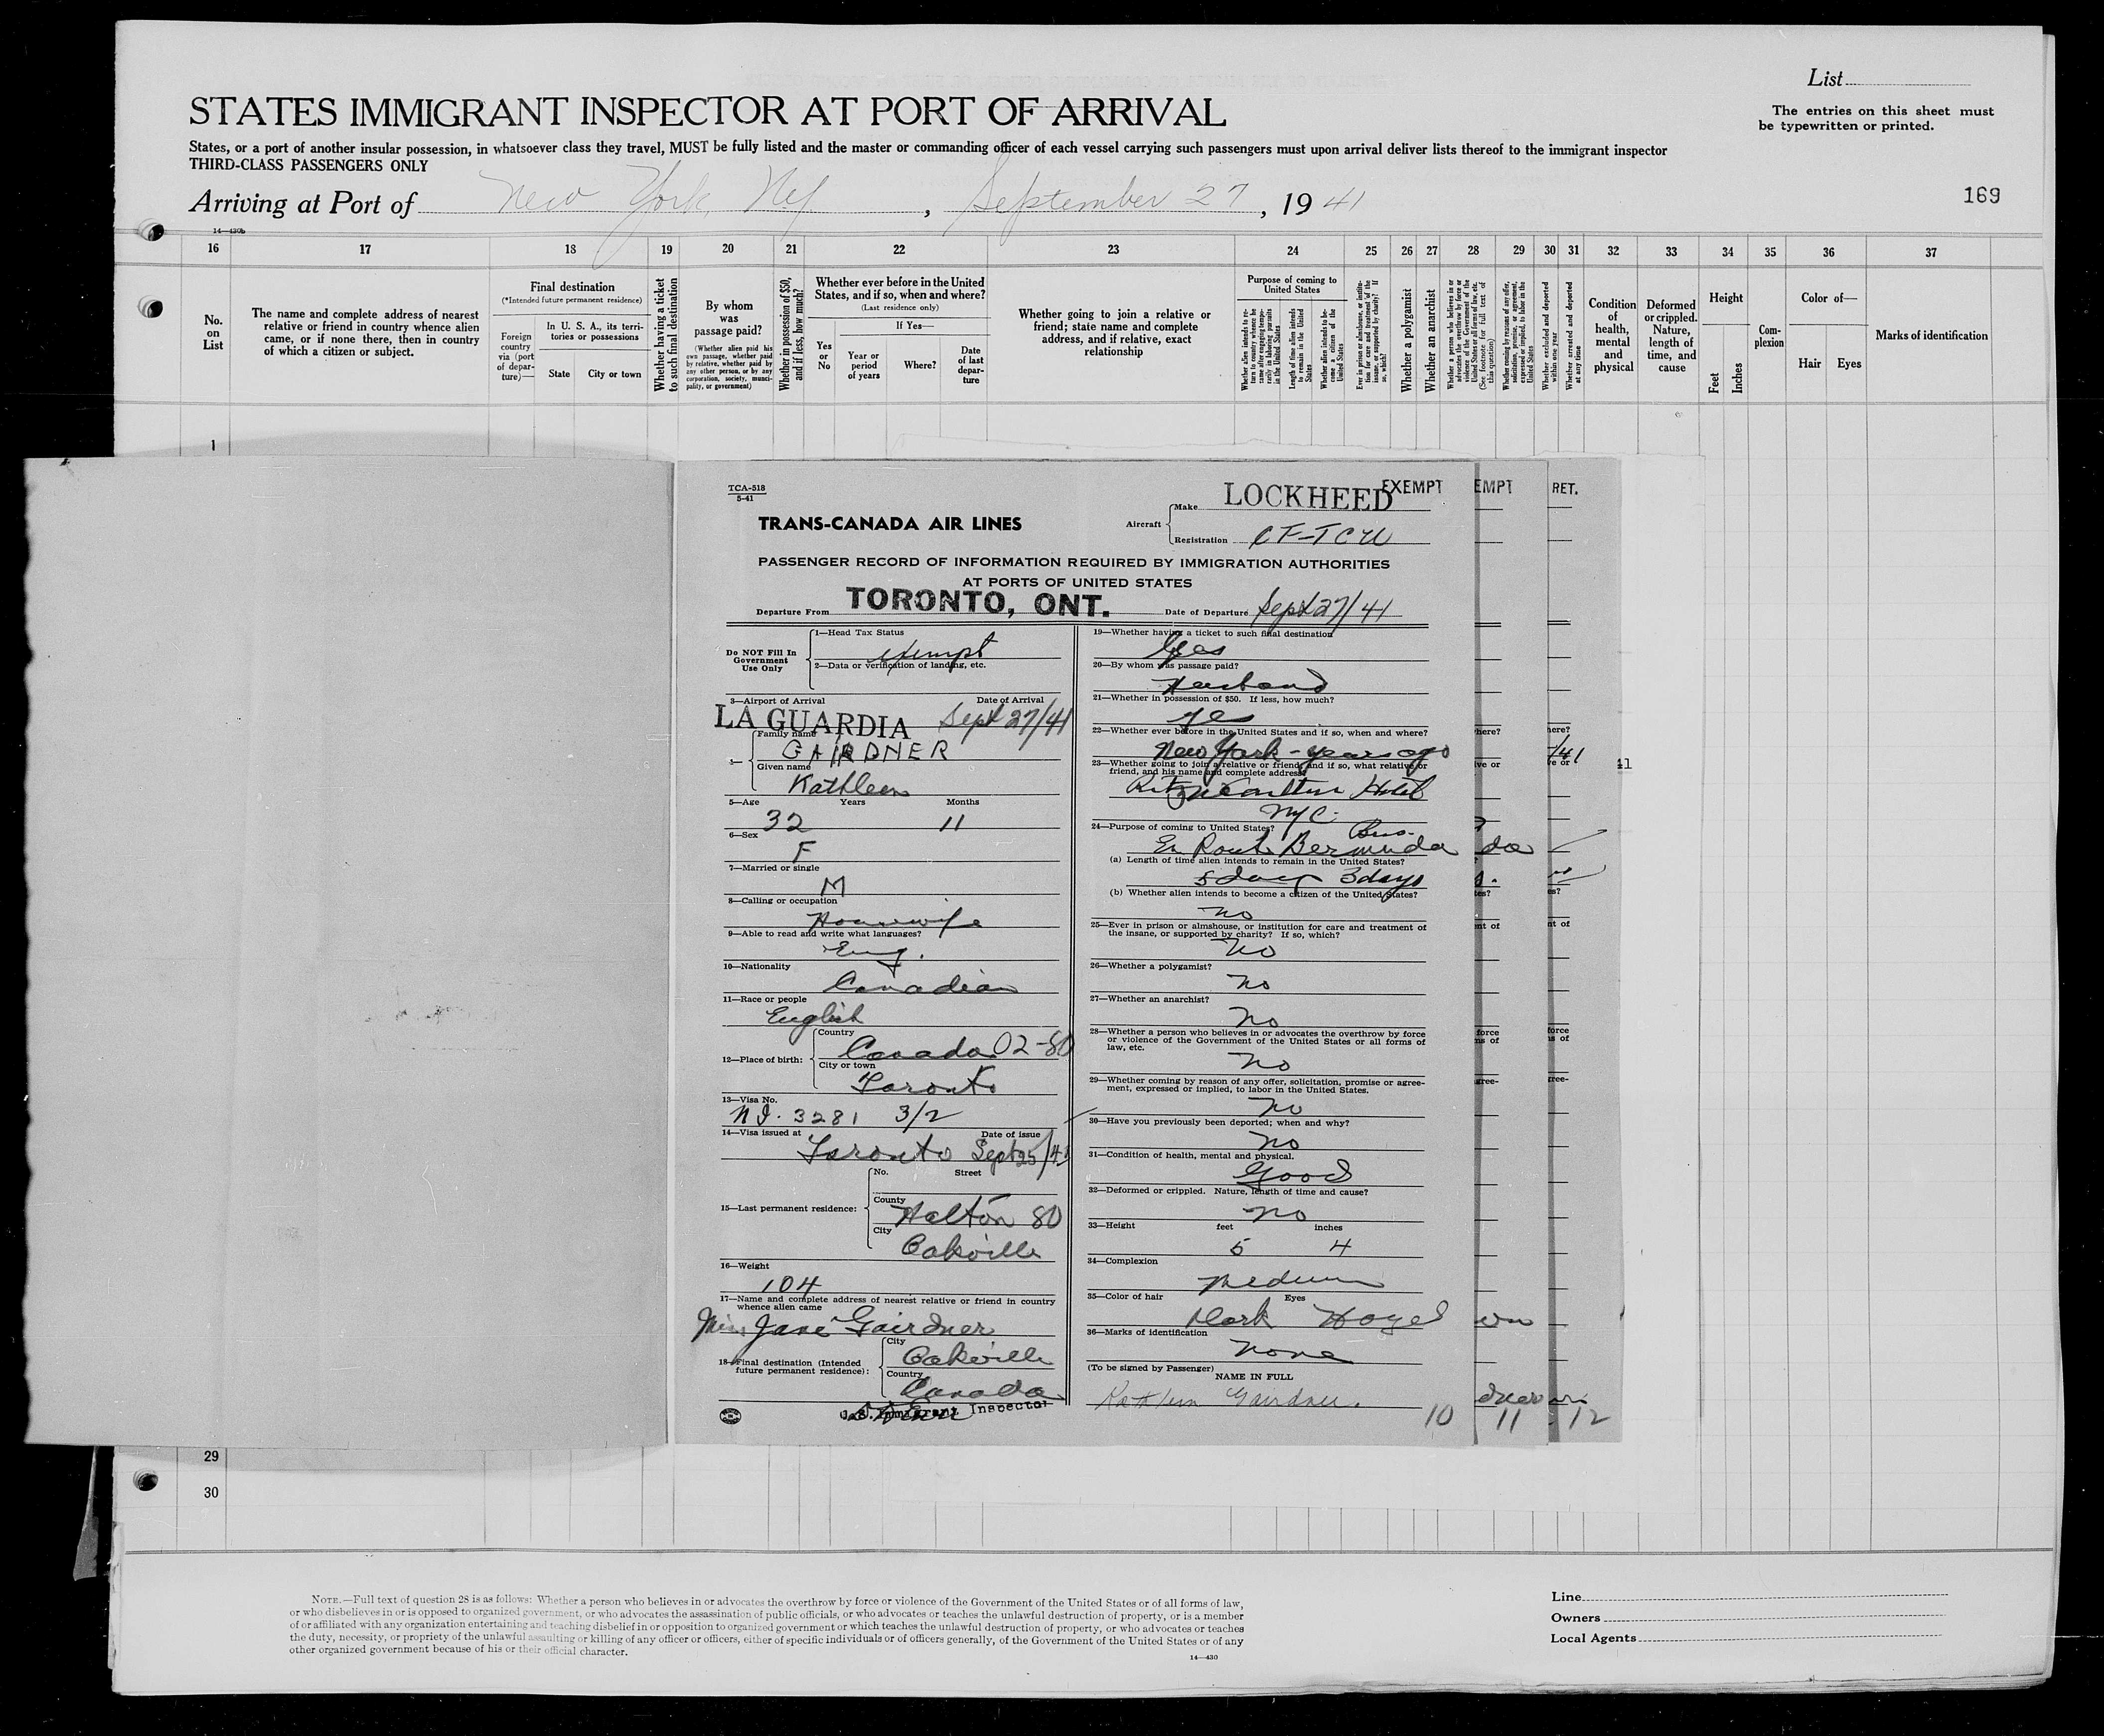 List
The entries on this sheet must
be typewritten or printed.
STATES IMMIGRANT INSPECTOR AT PORT OF ARRIVAL
States, or a port of another insular possession, in whatsoever class they travel, MUST be fully listed and the master or commanding officer of each vessel carrying such passengers must upon arrival deliver lists thereof to the immigrant inspector
THIRD-CLASS PASSENGERS ONLY
Arriving at Port of New York, NY, September 27, 1941
169
14—430b
16 17 18 19 20 21 22 23 24 25 26 27 28 29 30 31 32 33 34 35 36 37
No. on List
The name and complete address of nearest relative or friend in country whence alien came, or if none there, then in country of which a citizen or subject.
Final destination
(*Intended future permanent residence)
Foreign country via (port of departure)—
In U. S. A., its territories or possessions
State
City or town
Whether having a ticket to such final destination
By whom was passage paid?
(Whether alien paid his own passage, whether paid by relative, whether paid by any other person, or by any corporation, society, municipality, or government)
Whether in possession of $50, and if less, how much?
Whether ever before in the United States, and if so, when and where?
(Last residence only)
Yes or No
If Yes—
Year or period of years
Where?
Date of last departure
Whether going to join a relative or friend; state name and complete address, and if relative, exact relationship
Purpose of coming to United States
Whether alien intends to return to country whence he came after engaging temporarily in laboring pursuits in the United States
Length of time alien intends to remain in the United States
Whether alien intends to become a citizen of the United States
Ever in prison or almshouse, or institution for care and treatment of the insane, or supported by charity? If so, which?
Whether a polygamist
Whether an anarchist
Whether a person who believes in or advocates the overthrow by force or violence of the Government of the United States or all forms of law, etc. (See footnote for full text of this question)
Whether coming by reasons of any offer, solicitation, promise, or agreement, expressed or implied, to labor in the United States
Whether excluded and deported within one year
Whether arrested and deported at any time
Condition of health, mental and physical
Deformed or crippled. Nature, length of time, and cause
Height
Feet
Inches
Complexion
Color of—
Hair
Eyes
Marks of identification
1
TCA-518
5-41
TRANS-CANADA AIR LINES
Aircraft
Make LOCKHEED
EXEMPT
EMPT
RET.
Registration CF-TCU
PASSENGER RECORD OF INFORMATION REQUIRED BY IMMIGRATION AUTHORITIES
AT PORTS OF UNITED STATES
Departure From TORONTO, ONT. Date of Departure Sept 27/41
Do NOT Fill In Government Use Only
1—Head Tax Status
exempt
2—Data or verification of landing, etc.
3—Airport of Arrival Date of Arrival
LA GUARDIA Sept 27/41
4—
Family name
GAIRDNER
Given name
Kathleen
5—Age Years Months
32 11
6—Sex
F
7—Married or single
M
8—Calling or occupation
Housewife
9—Able to read and write what languages?
Eng.
10—Nationality
Canadian
11—Race or people
English
12—Place of birth:
Country
Canada 02-80
City or town
Toronto
13—Visa No.
N.I. 3281 3/2
14—Visa issued at Date of issue
Toronto Sept 25/41
15—Last permanent residence:
No. Street
County
Halton 80
City
Oakville
16—Weight
104
17—Name and complete address of nearest relative or friend in country
whence alien came
Miss Jane Gairdner
18—Final destination (Intended
future permanent residence):
City
Oakville
Country
Canada
U.S. Immigrant Inspector
19—Whether having a ticket to such final destination
Yes
20—By whom was passage paid?
Husband
21—Whether in possession of $50. If less, how much?
yes
22—Whether ever before in the United States and if so, when and where?
New York - years ago
23—Whether going to join a relative or friend, and if so, what relative or
friend, and his name and complete address?
Ritz Carlton Hotel
NYC.
24—Purpose of coming to United States?
En Route Bermuda
(a) Length of time alien intends to remain in the United States?
5 days 3 days
(b) Whether alien intends to become a citizen of the United States?
no
25—Ever in prison or almshouse, or institution for care and treatment of
the insane, or supported by charity? If so, which?
No
26—Whether a polygamist?
no
27—Whether an anarchist?
No
28—Whether a person who believes in or advocates the overthrow by force
or violence of the Government of the United States or all forms of
law, etc.
No
29—Whether coming by reason of any offer, solicitation, promise or agree-
ment, expressed or implied, to labor in the United States.
No
30—Have you previously been deported; when and why?
No
31—Condition of health, mental and physical.
Good
32—Deformed or crippled. Nature, length of time and cause?
no
33—Height feet inches
5 4
34—Complexion
Medium
35—Color of hair Eyes
Dark Hazel
36—Marks of identification
None
(To be signed by Passenger)
NAME IN FULL
Kathleen Gairdner.
10 11 12
29
30
NOTE.—Full text of question 28 is as follows: Whether a person who believes in or advocates the overthrow by force or violence of the Government of the United States or of all forms of law,
or who disbelieves in or is opposed to organized government, or who advocates the assassination of public officials, or who advocates or teaches the unlawful destruction of property, or is a member
of or affiliated with any organization entertaining and teaching disbelief in or opposition to organized government or which teaches the unlawful destruction of property, or who advocates or teaches
the duty, necessity, or propriety of the unlawful assaulting or killing of any officer or officers, either of specific individuals or of officers generally, of the Government of the United States or of any
other organized government because of his or their official character.
14—430
Line
Owners
Local Agents